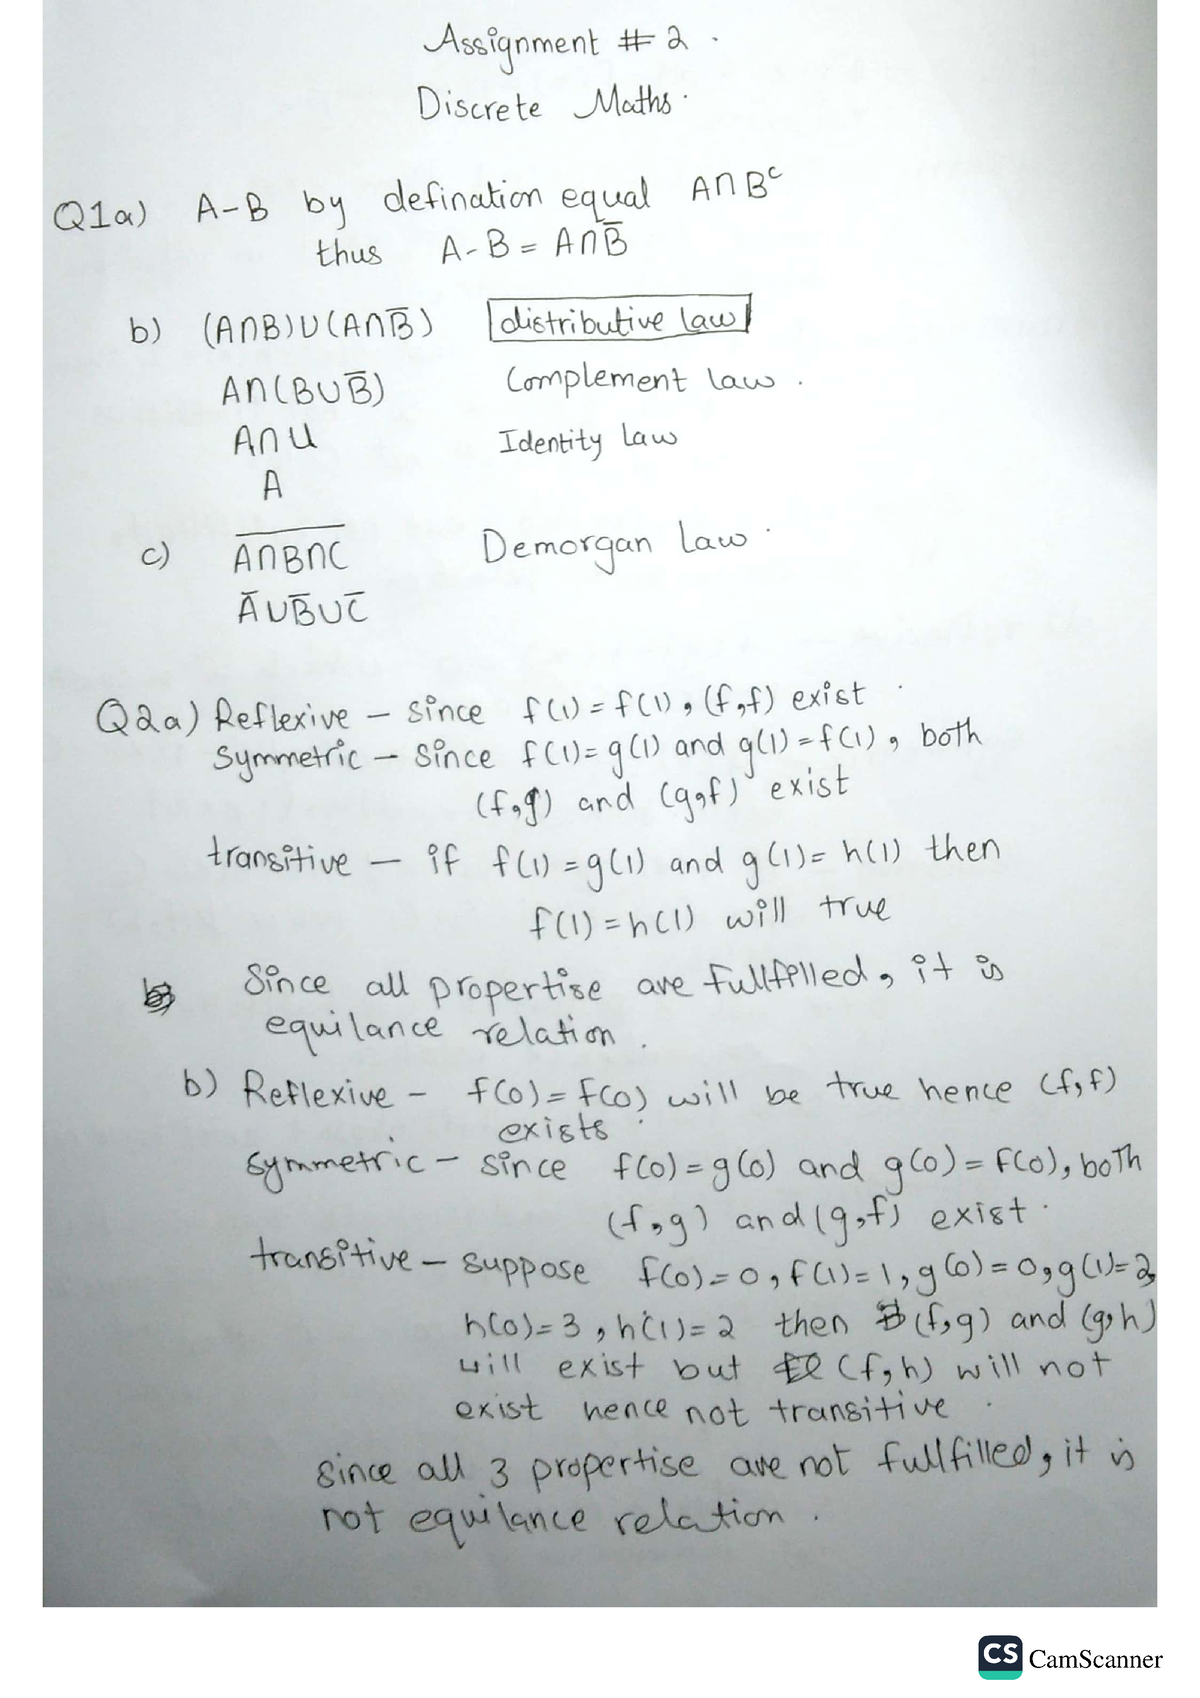 Assignment # 2 .
Discrete Maths .
Q1a) A-B by defination equal A∩Bᶜ
thus A-B = A∩B̅
b) (A∩B)∪(A∩B̅) distributive law
A∩(B∪B̅) Complement law .
A∩U Identity law
A
c) A̅∩̅B̅∩̅C̅ Demorgan law .
A̅∪B̅∪C̅
Q2a) Reflexive – since f(1) = f(1), (f,f) exist .
Symmetric – Since f(1) = g(1) and g(1) = f(1), both
(f,g) and (g,f) exist
transitive – if f(1) = g(1) and g(1) = h(1) then
f(1) = h(1) will true
Since all propertise are fullfilled, it is
equilance relation .
b) Reflexive – f(0) = f(0) will be true hence (f,f)
exists .
symmetric – since f(0) = g(0) and g(0) = f(0), both
(f,g) and (g,f) exist .
transitive – suppose f(0)=0, f(1)=1, g(0)=0, g(1)=2,
h(0)=3, h(1)=2 then (f,g) and (g,h)
will exist but (f,h) will not
exist hence not transitive .
since all 3 propertise are not fullfilled, it is
not equilance relation .
CS CamScanner